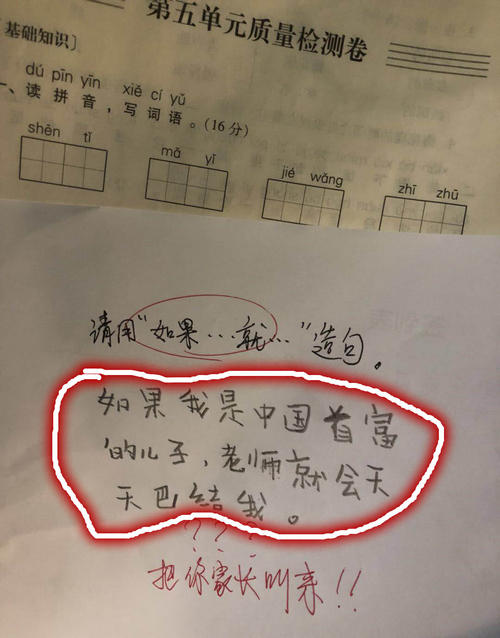 第五单元质量检测卷
基础知识〕
dú pīn yīn xiě cí yǔ
一、读拼音，写词语。(16分)
shēn tǐ
mǎ yǐ
jié wǎng
zhī zhū
请用"如果…就…"造句。
如果我是中国首富
的儿子，老师就会天
天巴结我。
？？？
把你家长叫来!!